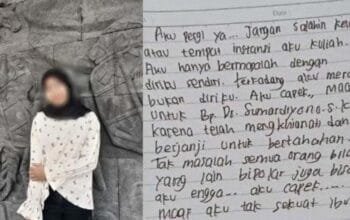 Date :
Aku pergi ya... Jangan salahin ke
atau tempat instansi aku kuliah.
Aku hanya bermasalah dengan
diriku sendiri. terkadang aku mera
bukan diriku. Aku capek, maa
untuk Bp. Dr. Sumardiyono. S.K
karena telah mengkhianati dan
berjanji untuk bertahan.
Tak masalah semua orang bila
yang lain bipolar juga bisa
aku engga... aku capek......
maaf aku tak sekuat ibu